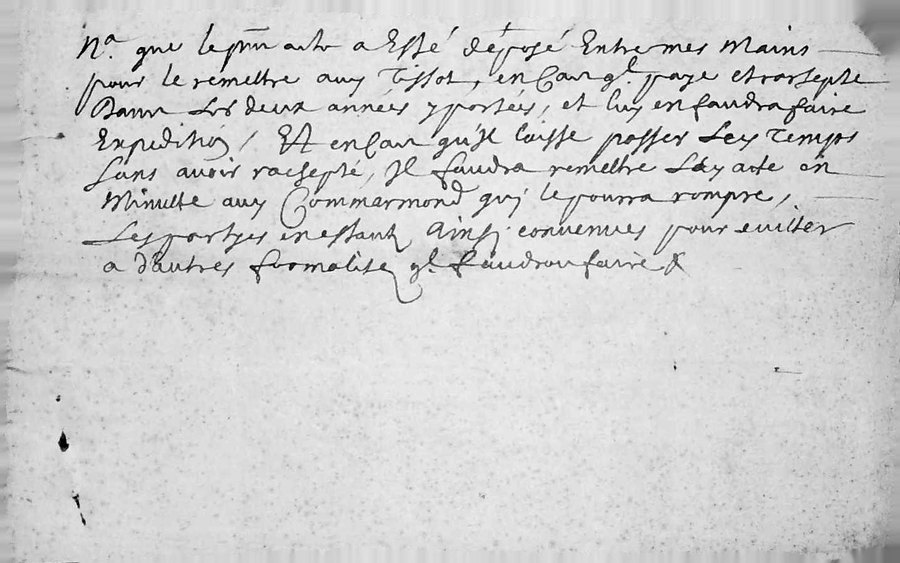 Na. que le pnt acte a Esté déposé Entre mes Mains
pour le remettre aux Tissot, en Cas ql paye et rachepte
Dans Les deux années y portées, et luy en faudra faire
Expedition / Et en Cas qu'Il laisse passer Lesd Temps
Sans avoir rachepté, Il faudra remettre Led acte en
Minutte aux Commarmond qui le pourra rompre,
Les partyes en estant Ainsi convenues pour eviter
a d'autres formalites ql faudroit faire